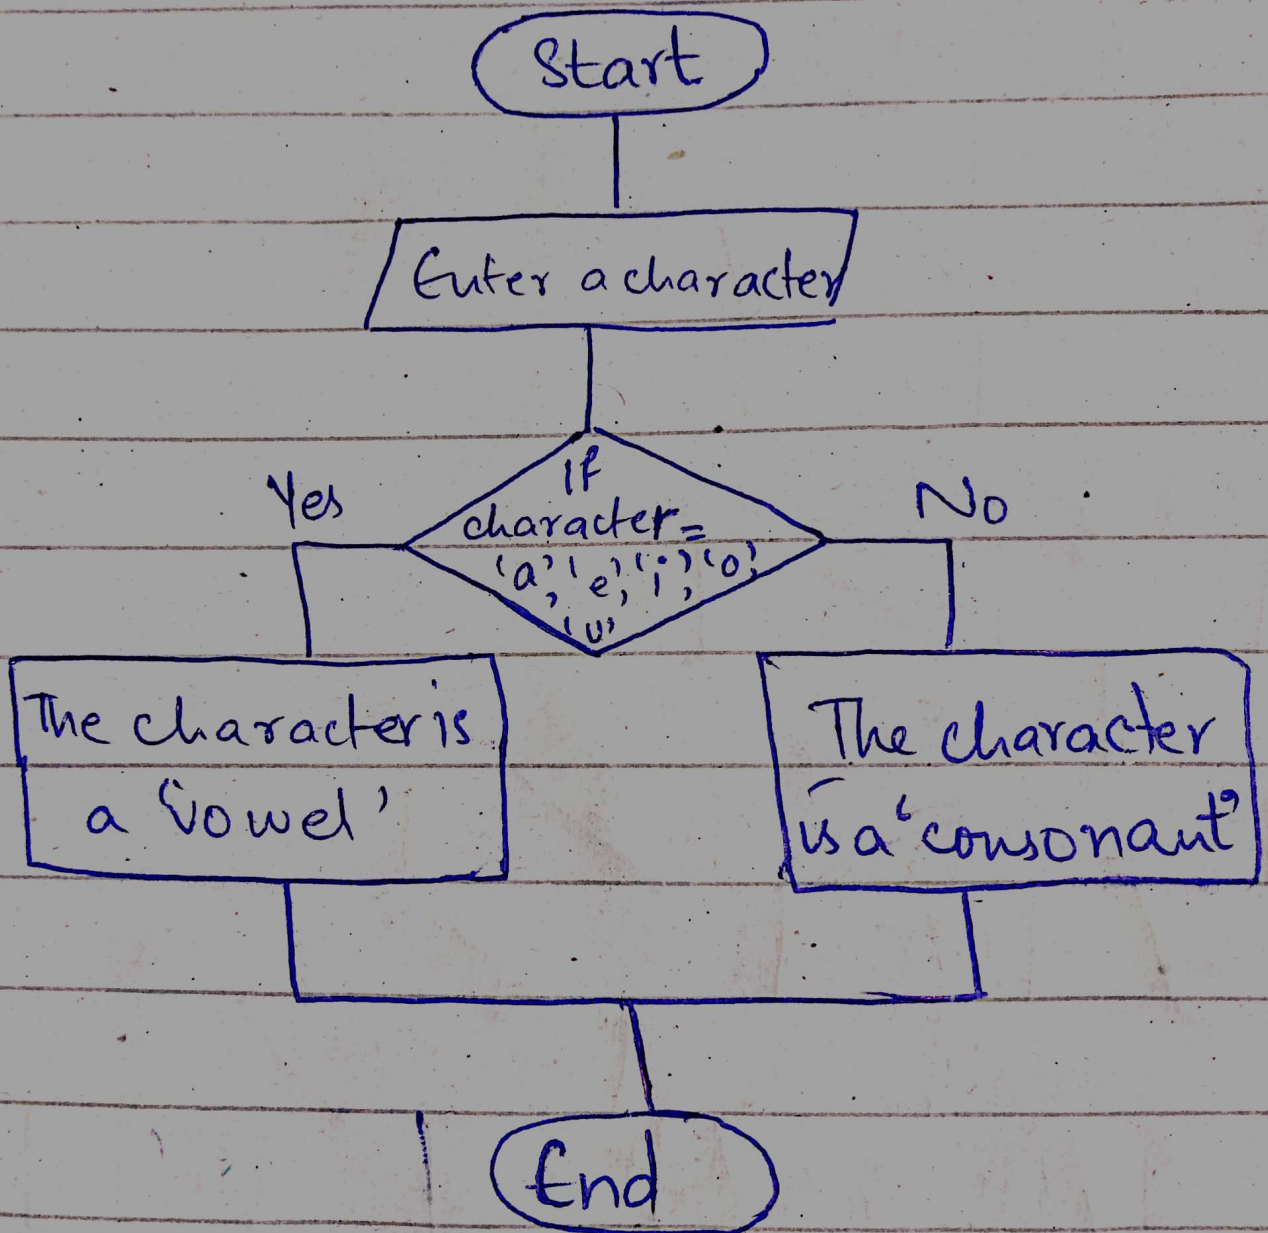 Start
Enter a character
Yes
If
No
character=
'a', 'e', 'i', 'o',
'u'
The character is
a 'vowel'
The character
is a 'consonant'
End